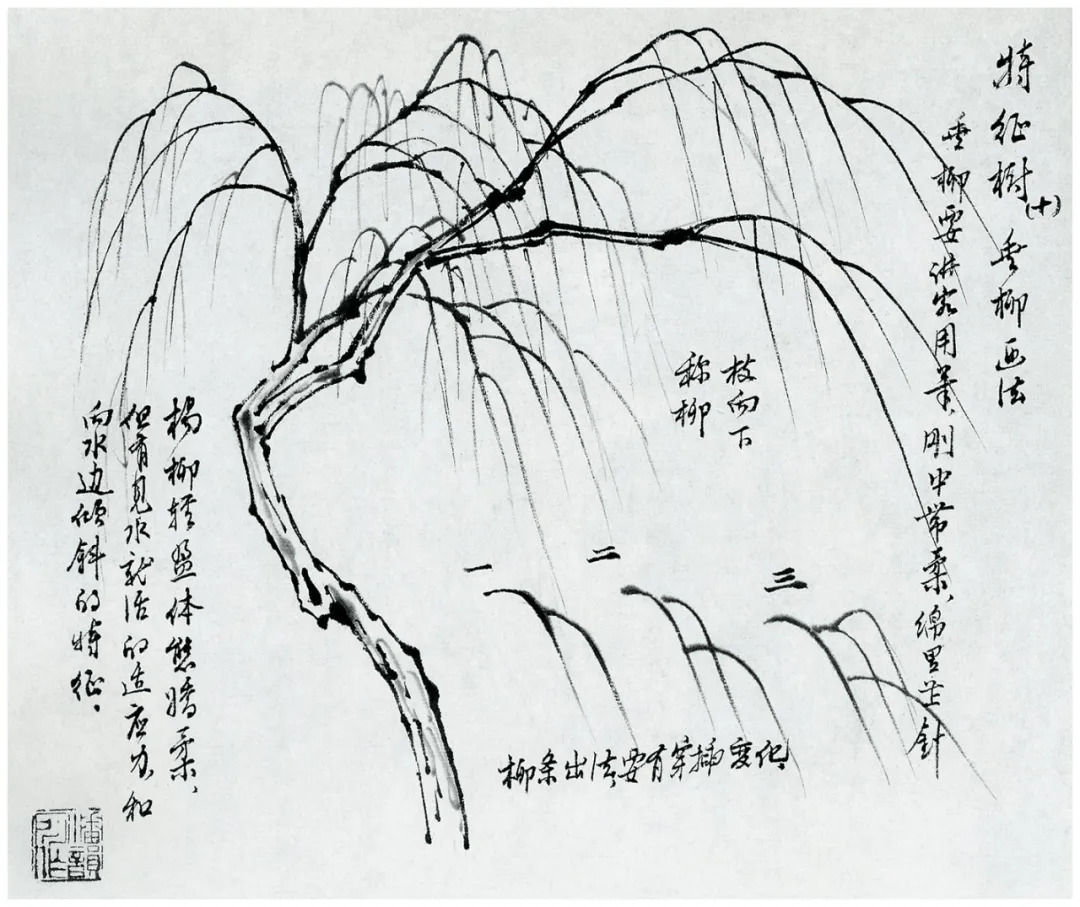 特征树(十) 垂柳画法
垂柳要讲究用笔、刚中带柔、绵里藏针
枝向下
称柳
一
二
三
柳条出法,要有穿插变化、
杨柳轻盈体态娇柔、
但有见水就活的适应力、和
向水边倾斜的特征、